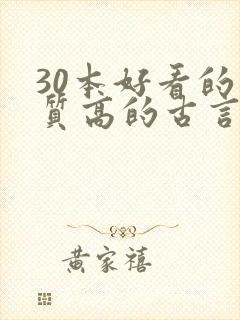 30本好看的
质高的古言
黄家禧